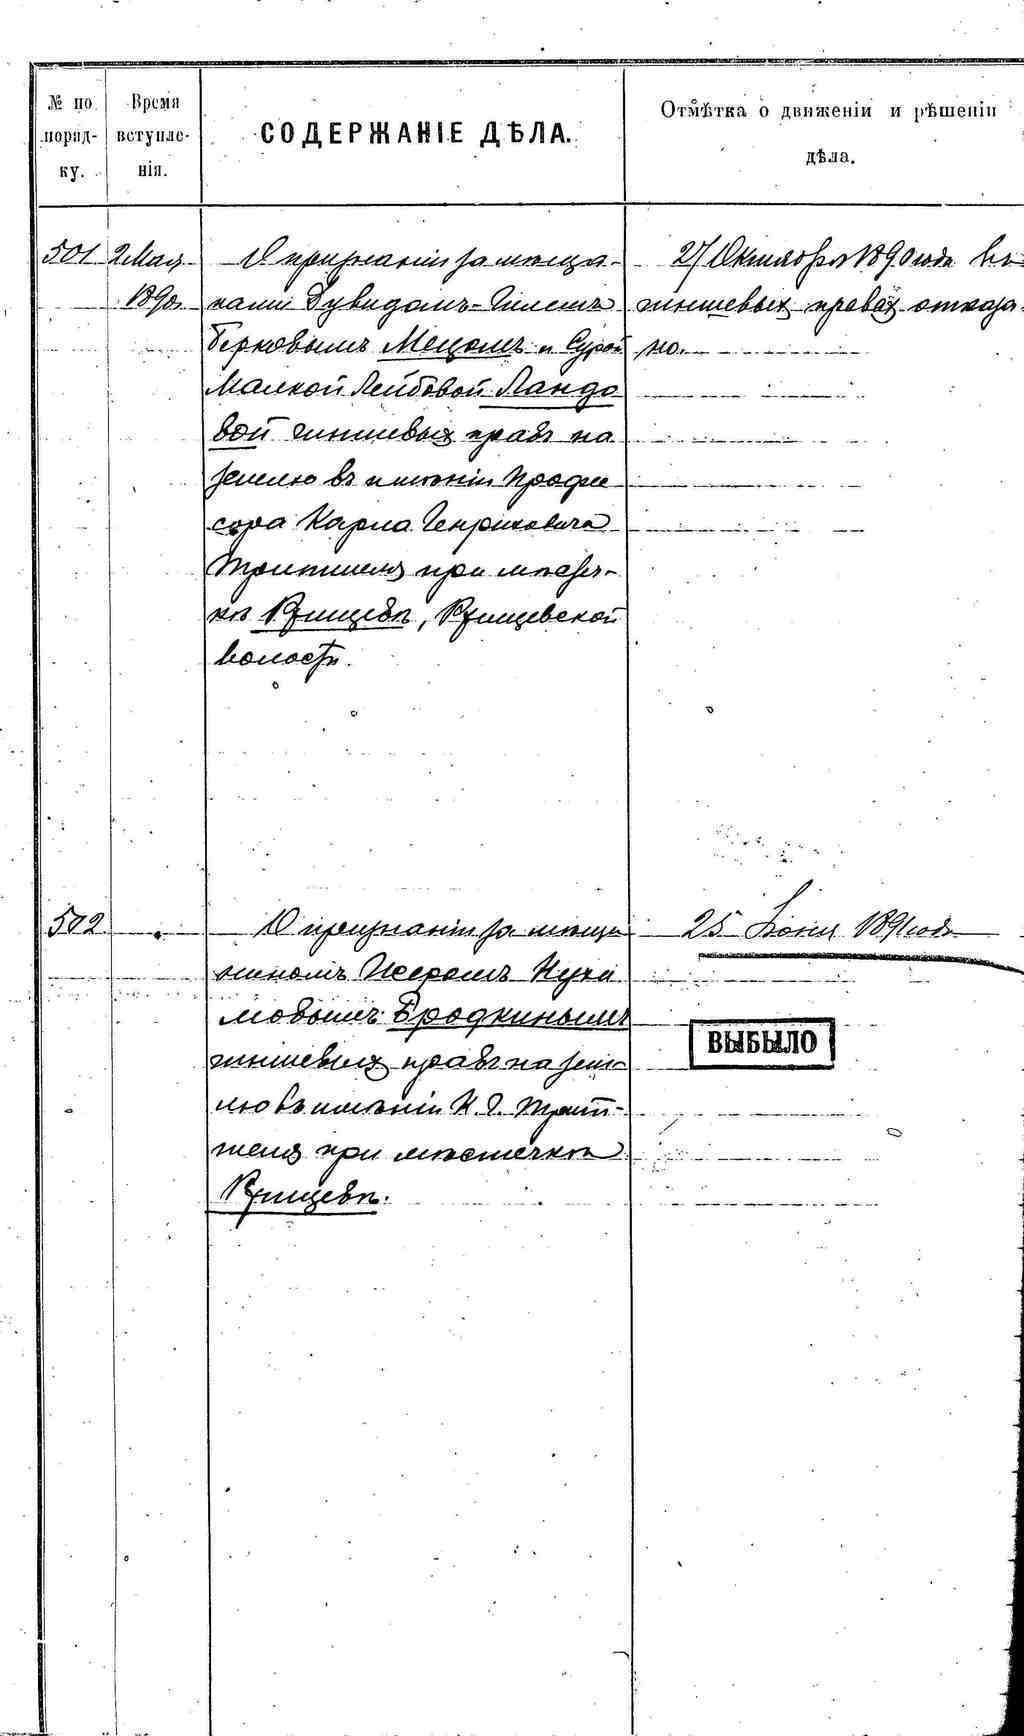 № по порядку.
Время вступленія.
СОДЕРЖАНІЕ ДѢЛА.
Отмѣтка о движеніи и рѣшеніи
дѣла.
501 2 Мая
1890.
О признаніи за мѣща-
нами Дувидомъ-Гилемъ
Берковымъ Мецомъ и Сурой
Малкой Лейбовой Ландо
вой чиншевыхъ правъ на
землю въ имѣніи Профес
сора Карла Генриховича
при мѣстеч-
кѣ Ржищевѣ, Ржищевской
волости.
27 Октября 1890 года въ
чиншевыхъ правахъ отказа-
но.
502
О признаніи за мѣща
ниномъ
Бродкинымъ
чиншевыхъ правъ на зем-
лю въ имѣніи К. Г.
при мѣстечкѣ
Ржищевѣ.
25 Іюня 1891 года
ВЫБЫЛО